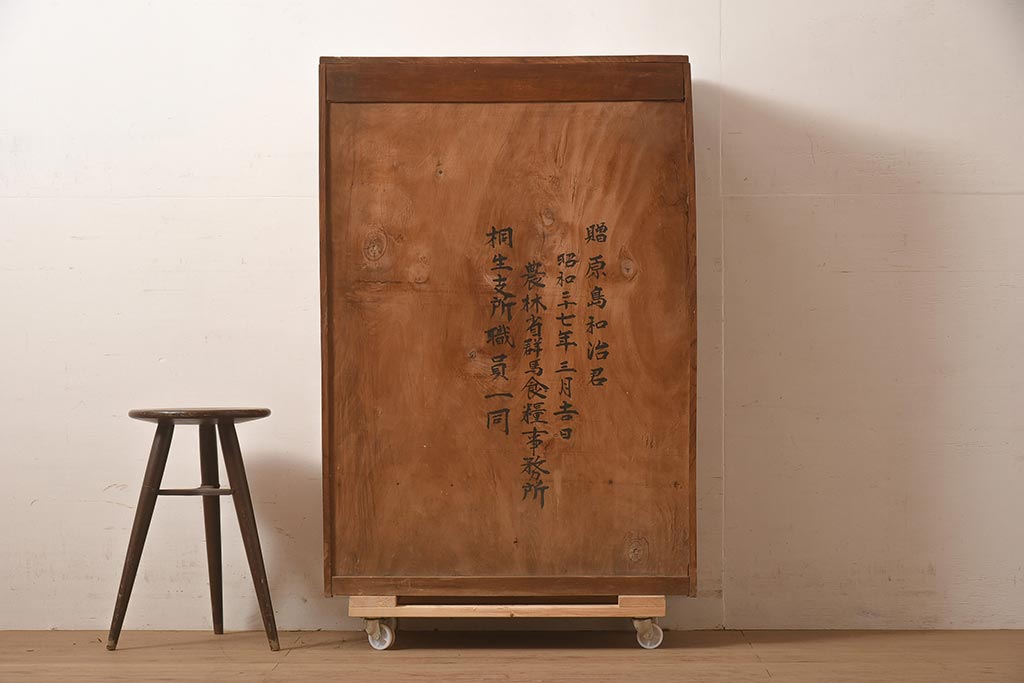 贈原島和治君
昭和三十七年三月吉日
農林省群馬食糧事務所
桐生支所職員一同